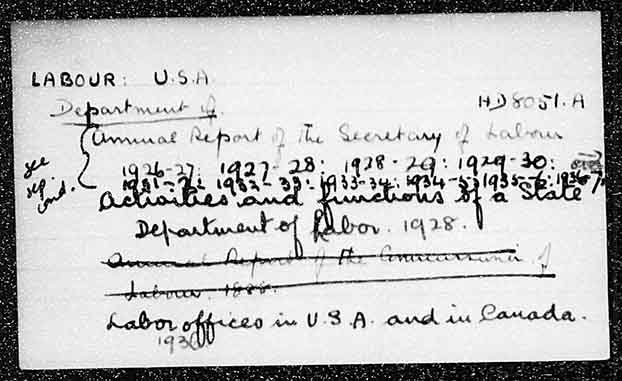 LABOUR: U.S.A.
Department of
HD8051.A
Annual Report of the Secretary of Labour
see sep. cond.
1926-27: 1927-28: 1928-29: 1929-30:
1931-2: 1932-33: 1933-34: 1934-5: 1935-6: 1936-7
Activities and functions of a State
Department of Labor. 1928.
Annual Report of the Commissioner of
Labour. 1888.
Labor offices in U.S.A. and in Canada.
1930